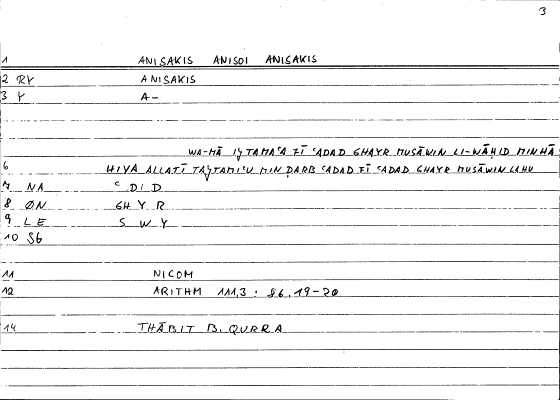 3
1 ANISAKIS ANISOI ANISAKIS
2 RY ANISAKIS
3 Y A-
WA-MĀ IǦTAMAʿA FĪ ʿADAD GHAYR MUSĀWIN LI-WĀḤID MINHĀ
6 HIYA ALLATĪ TAǦTAMIʿU MIN ḌARB ʿADAD FĪ ʿADAD GHAYR MUSĀWIN LAHU
7 NA ʿ D I D
8 ØN GH Y R
9 LE S W Y
10 SG
11 NICOM
12 ARITHM 111,3 : 86.19-20
14 THĀBIT B. QURRA